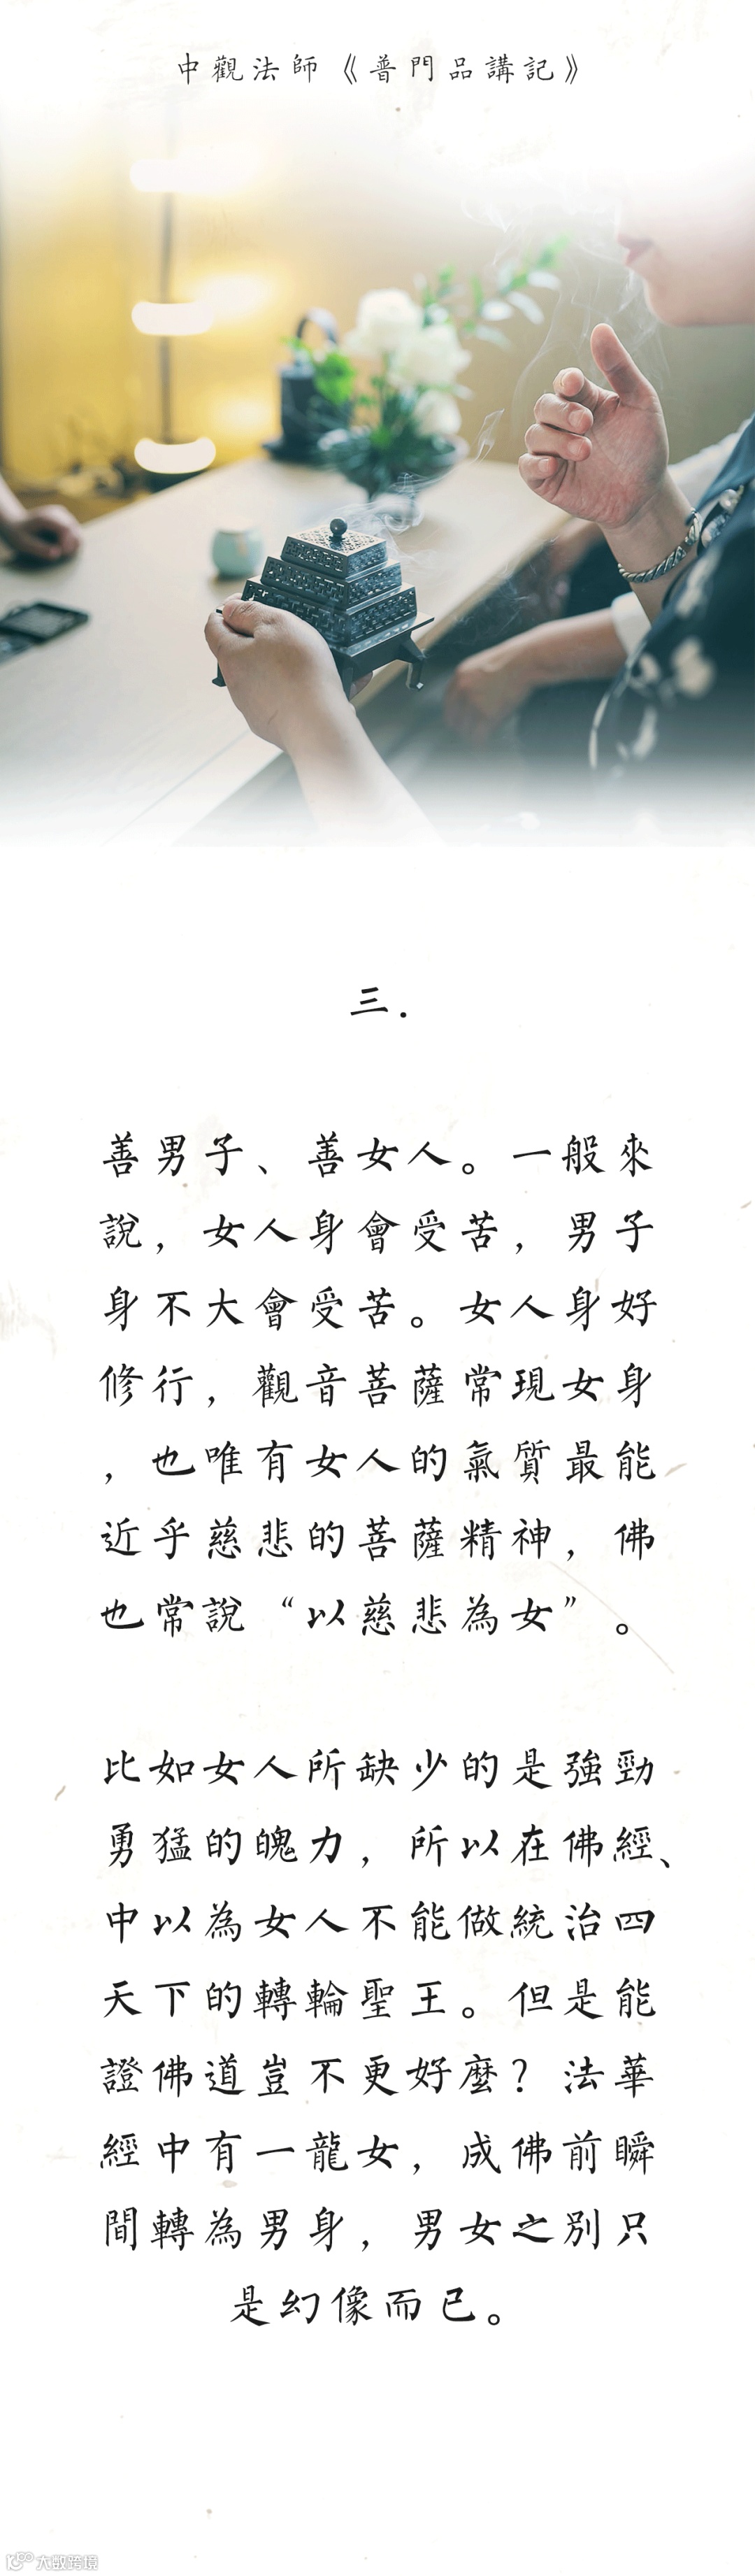 中觀法師《普門品講記》
三.
善男子、善女人。一般來
說，女人身會受苦，男子
身不大會受苦。女人身好
修行，觀音菩薩常現女身
，也唯有女人的氣質最能
近乎慈悲的菩薩精神，佛
也常說“以慈悲為女”。
比如女人所缺少的是強勁
勇猛的魄力，所以在佛經、
中以為女人不能做統治四
天下的轉輪聖王。但是能
證佛道豈不更好麼？法華
經中有一龍女，成佛前瞬
間轉為男身，男女之別只
是幻像而已。
大數跨境